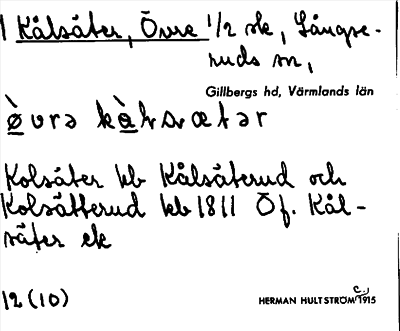 1 Kålsäter, Övre 1/2 sk, Långse-
ruds sn,
Gillbergs hd, Värmlands län
Kolsäter kb Kålsäterud och
Kolsätterud kb 1811 Öf. Kål-
säter ek
12 (10)
HERMAN HULTSTRÖM c.) 1915